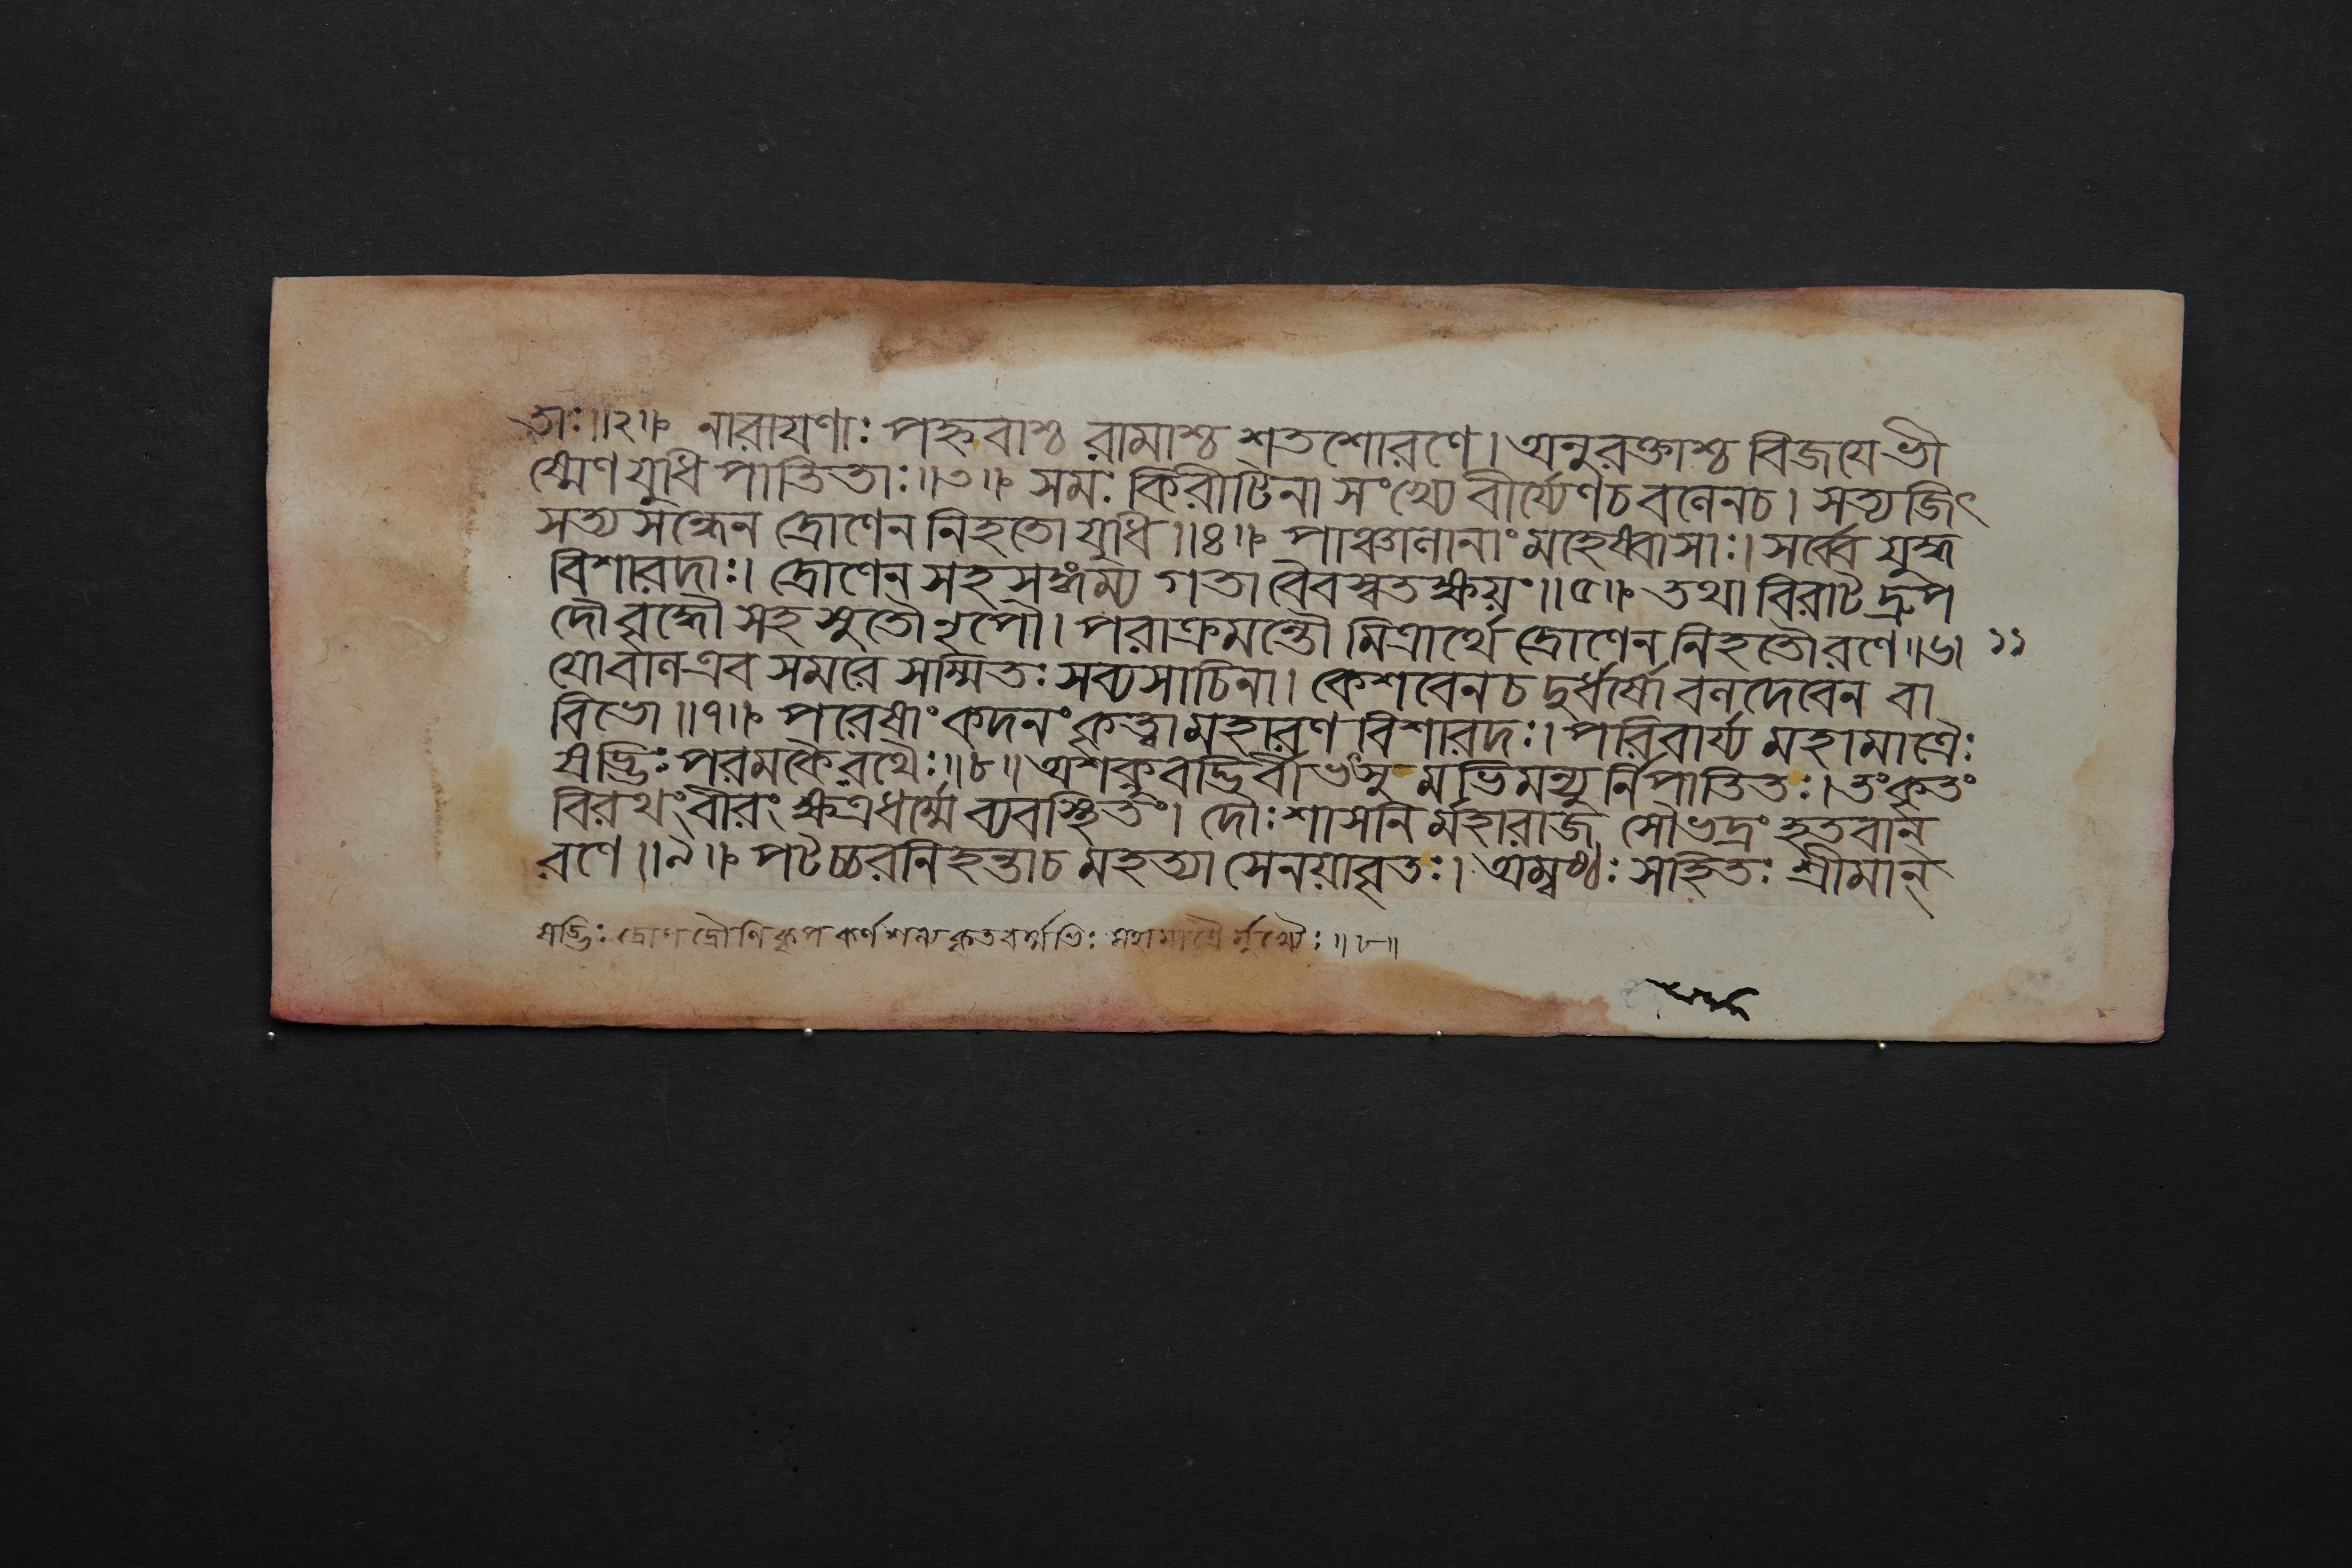 তাঃ॥২॥ নারায়ণাঃ পহ্লবাশ্চ রামাশ্চ শতশোরণে। অনুরক্তাশ্চ বিজয়ে ভী
ষ্মেণ যুধি পাতিতাঃ॥৩॥ সমঃ কিরীটিনা সংখ্যে বীর্য্যেণচ বলেনচ। সত্যজিৎ
সত্য সন্ধেন দ্রোণেন নিহতো যুধি॥৪॥ পাঞ্চালানাং মহেষ্বাসাঃ। সর্ব্বে যুদ্ধ
বিশারদাঃ। দ্রোণেন সহ সঙ্গম্য গতা বৈবস্বতক্ষয়ং॥৫॥ তথা বিরাট দ্রুপ
দৌ বৃদ্ধৌ সহ সুতৌ নৃপৌ। পরাক্রমন্তৌ মিত্রার্থে দ্রোণেন নিহতৌরণে॥৬॥ ১১
যোবাল এব সমরে সম্মিতঃ সব্যসাচিনা। কেশবেনচ দুর্ধর্ষো বলদেবেন বা
বিভো॥৭॥ পরেষাং কদনং কৃত্বা মহারণ বিশারদঃ। পরিবার্য্য মহামাত্রৈঃ
ষড্ভিঃ পরমকৈ রথৈঃ॥৮॥ অশক্নুবদ্ভির্বীভৎসু মভিমন্যু র্নিপাতিতঃ। তং কৃতং
বিরথং বীরং ক্ষত্রধর্ম্মে ব্যবস্থিতং। দৌঃশাসনি র্মহারাজ সৌভদ্রং হতবান্
রণে॥৯॥ পটচ্চরনিহন্তাচ মহত্যা সেনয়াবৃতঃ। অম্বষ্ঠঃ সহিতঃ শ্রীমান্
ষড্ভিঃ দ্রোণ দ্রৌণি কৃপ কর্ণ শল্য কৃতবর্ম্মভিঃ মহামাত্রৈ র্মুখ্যৈঃ॥৮॥